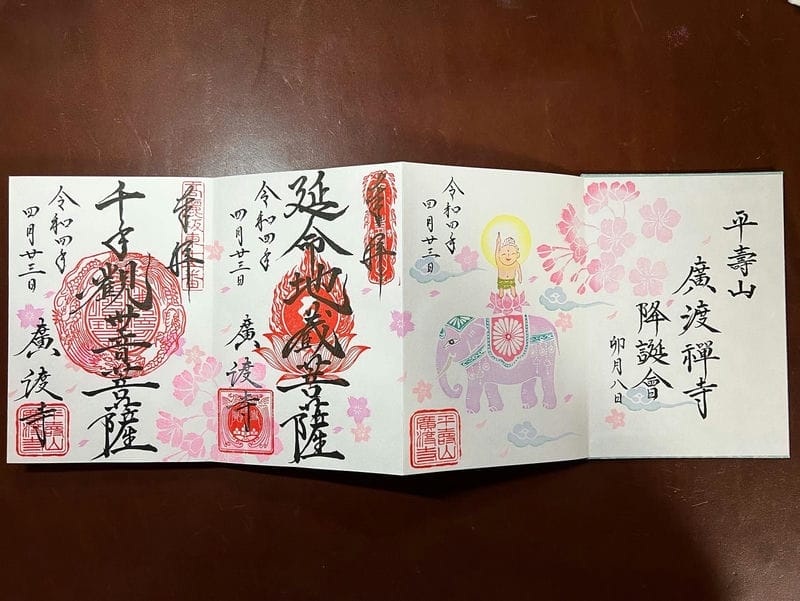 平壽山
廣渡禪寺
降誕會
卯月八日
令和四年
四月廿三日
平壽山
廣渡寺
奉拝
延命地蔵菩薩
令和四年
四月廿三日
廣渡寺
奉拝
千手觀世音菩薩
令和四年
四月廿三日
廣渡寺
平壽山
廣渡寺